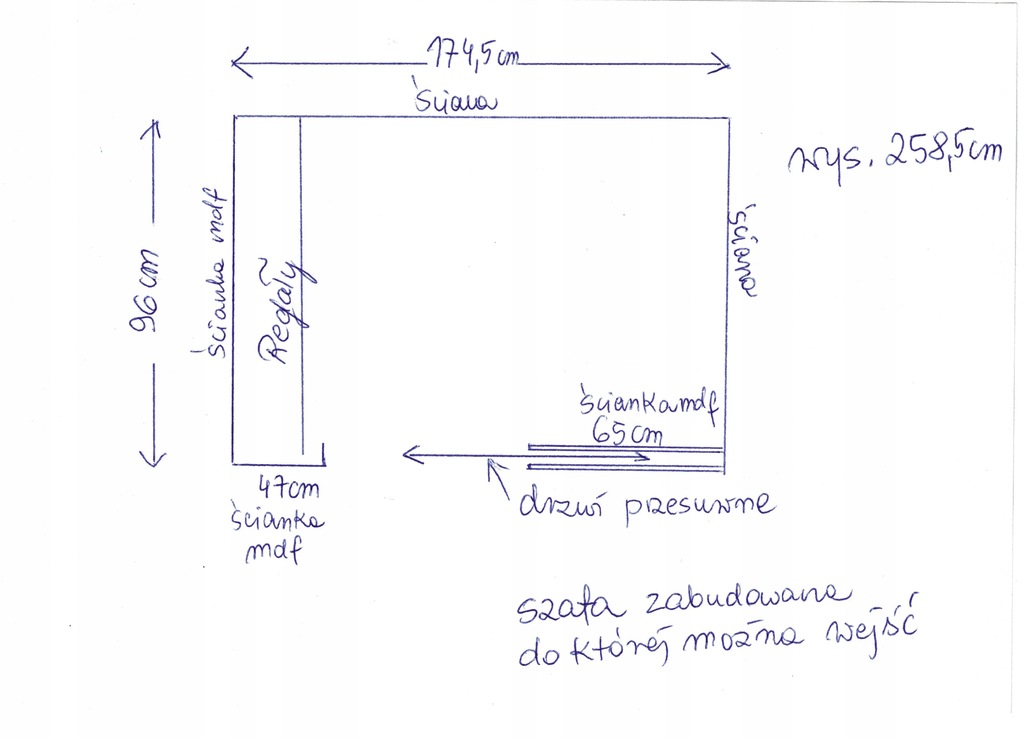 174,5cm
ściana
wys. 258,5cm
96cm
ścianka mdf
Regały
ściana
ścianka mdf
65cm
47cm
ścianka
mdf
drzwi przesuwne
szafa zabudowana
do której można wejść